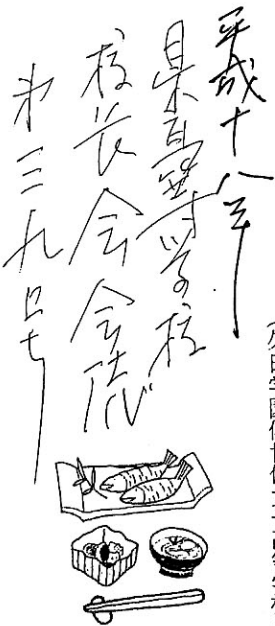 平成十八年
県高等学校
校長会会誌
第三九号